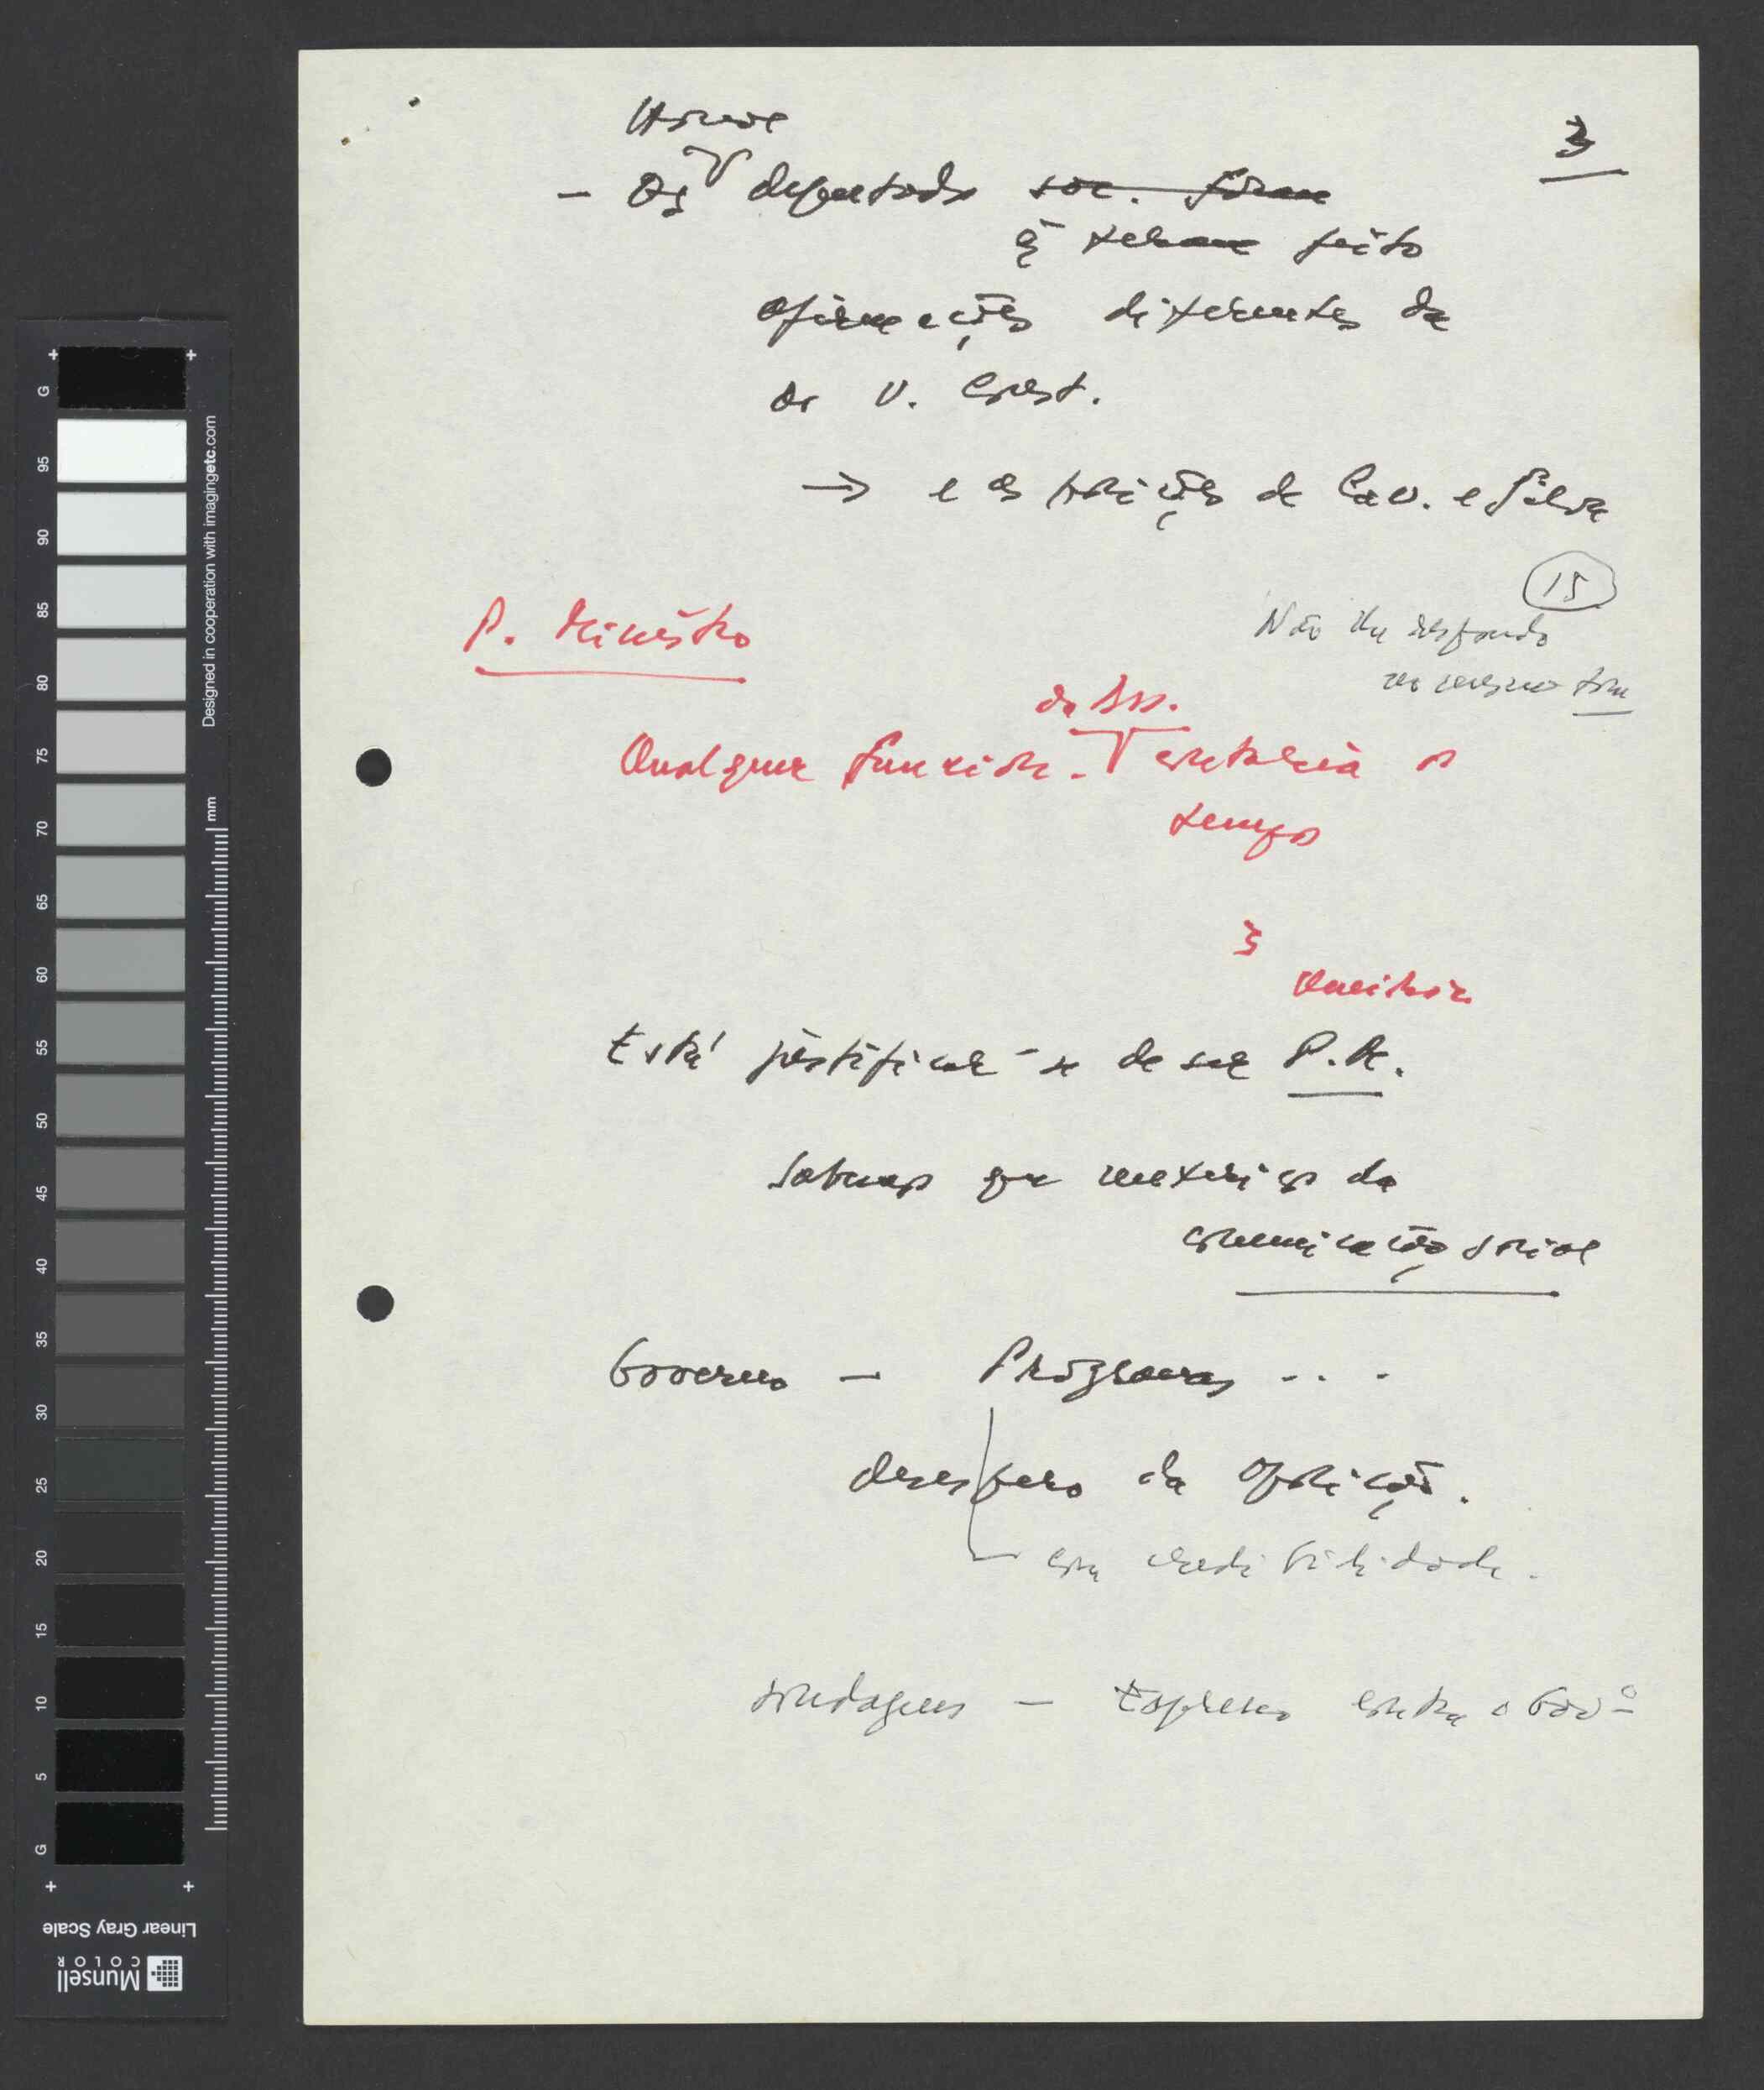 3
Houve
- Os deputados soc. foram
q̃ tenham feito
afirmações diferentes da
do V. Const.
→ e as posições de Cav. e Silva
15
Não lhe respondo
no mesmo tom
P. Ministro
da Ass.
Qualquer funcion. contaria o
tempo
3
Está justificar-se de ser P.M.
Sabemos que
comunicação social
Governo - Programas ...
desespero da oposição.
com credibilidade.
sondagens - Expresso contra o Govº
G
95
90
85
80
75
70
65
60
55
50
45
40
35
30
25
20
15
10
5
G
mm
Designed in cooperation with imagingetc.com
Linear Gray Scale
Munsell
COLOR